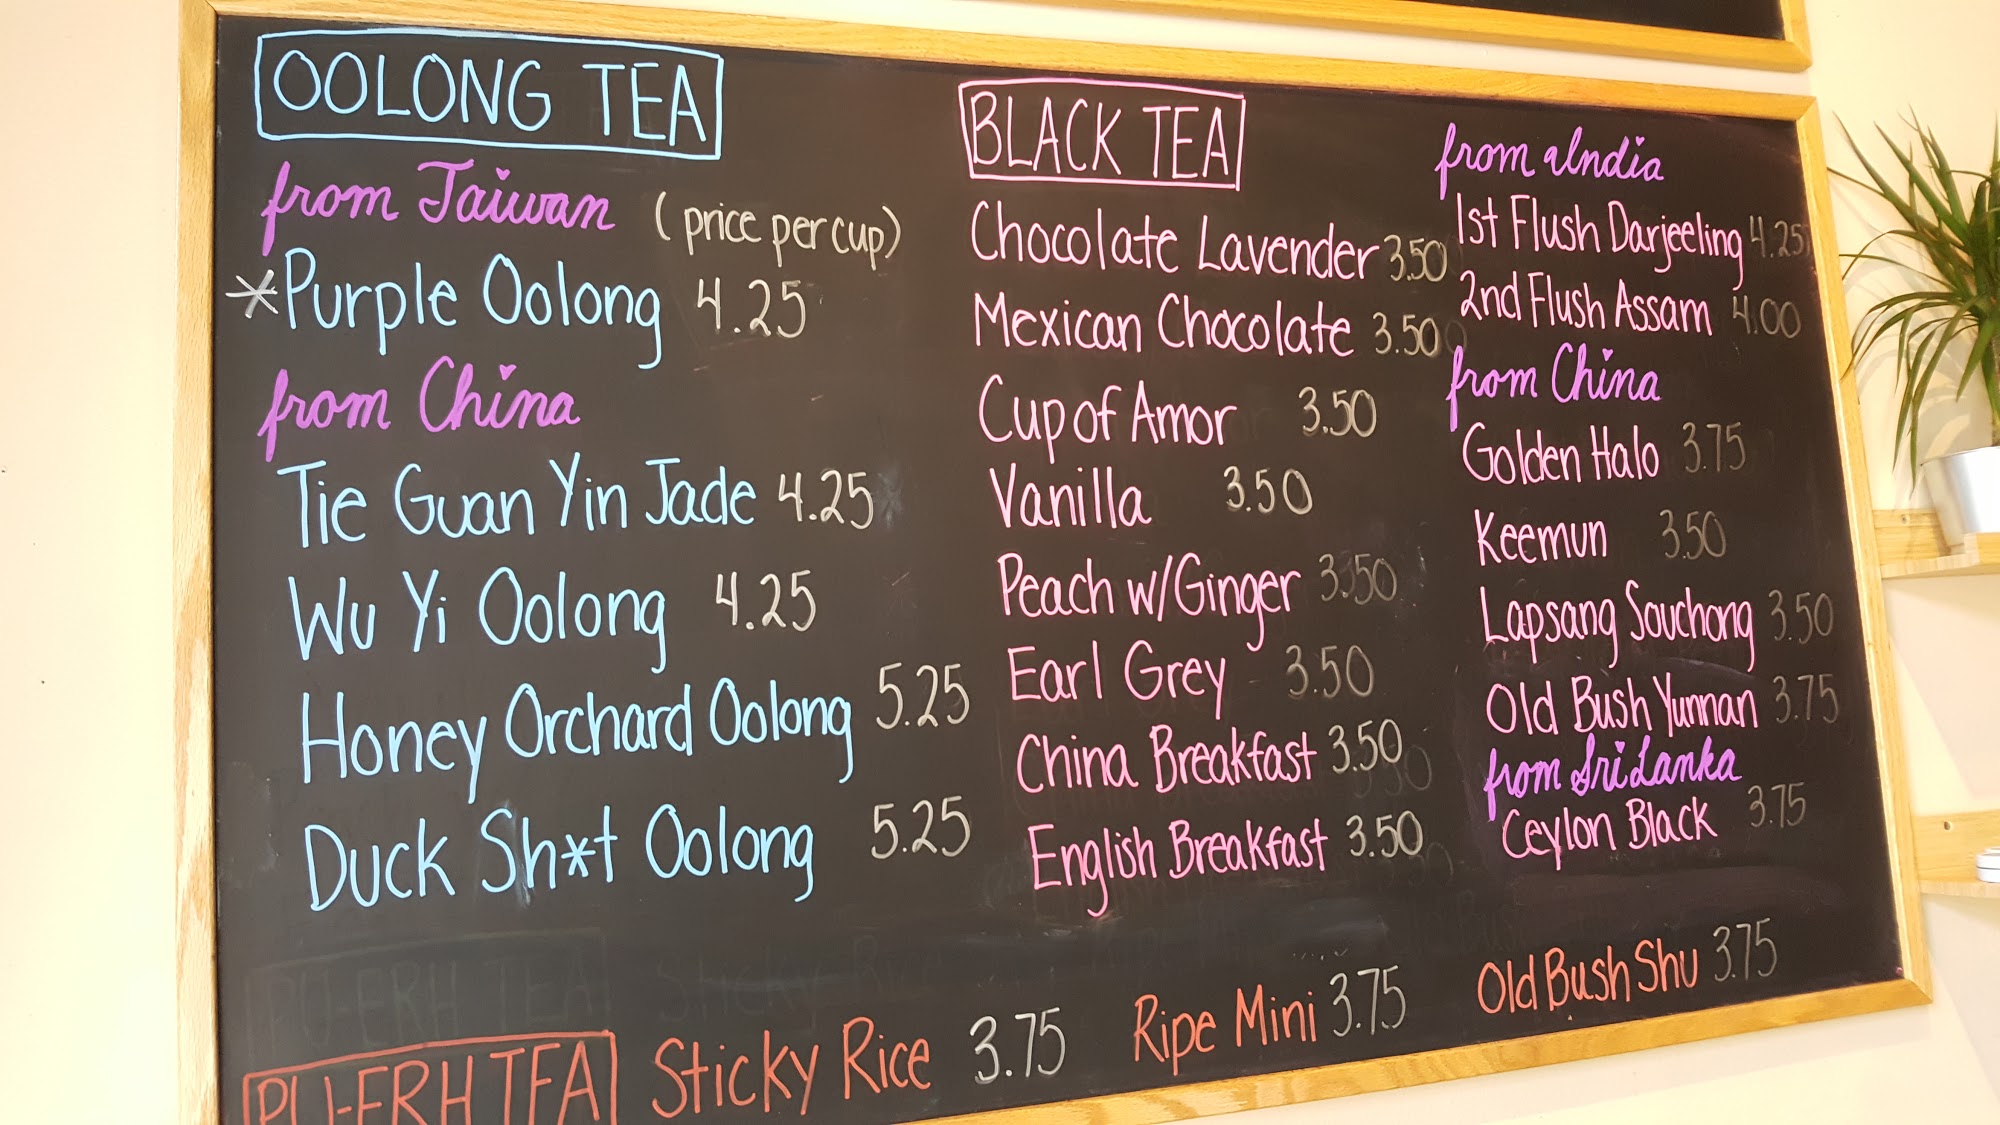 OOLONG TEA
from Taiwan (price per cup)
*Purple Oolong 4.25
from China
Tie Guan Yin Jade 4.25
Wu Yi Oolong 4.25
Honey Orchard Oolong 5.25
Duck Sh*t Oolong 5.25
BLACK TEA
Chocolate Lavender 3.50
Mexican Chocolate 3.50
Cup of Amor 3.50
Vanilla 3.50
Peach w/Ginger 3.50
Earl Grey 3.50
China Breakfast 3.50
English Breakfast 3.50
from India
1st Flush Darjeeling 4.25
2nd Flush Assam 4.00
from China
Golden Halo 3.75
Keemun 3.50
Lapsang Souchong 3.50
Old Bush Yunnan 3.75
from Sri Lanka
Ceylon Black 3.75
PU-ERH TEA Sticky Rice 3.75 Ripe Mini 3.75 Old Bush Shu 3.75